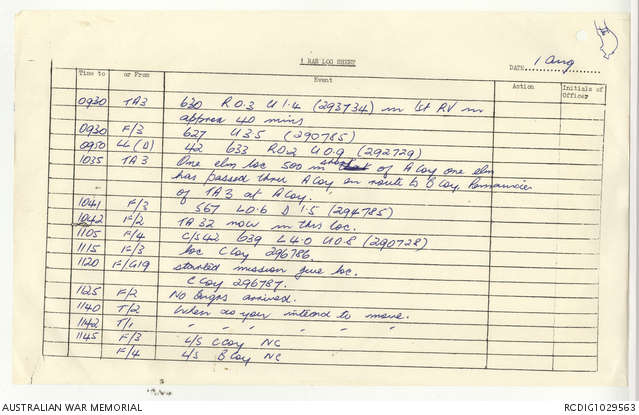 1 RAR LOG SHEET
DATE 1 Aug
Time to or From Event Action Initials of Officer
0930 TA3 630 R0.3 U1.4 (293734) in 1st RV in
approx 40 mins
0930 F/3 627 U3.5 (290785)
0950 LL(D) 42 633 R0.2 U0.9 (292729)
1035 TA3 One elm loc 500 m short of A Coy one elm
has passed thru A Coy on route to D Coy. Remainder
of TA3 at A Coy.
1041 F/3 567 L0.6 D1.5 (294785)
1042 F/2 TA32 now in this loc.
1105 F/4 C/S42 639 L4.0 U0.8 (290728)
1115 F/3 loc C Coy 296786.
1120 F/G19 started mission give loc.
C Coy 296787.
1125 F/2 No Engrs arrived.
1140 T/2 When do you intend to move.
1142 T/1 " " " " " "
1145 F/3 L/S C Coy NC
F/4 L/S B Coy NC
AUSTRALIAN WAR MEMORIAL
RCDIG1029563